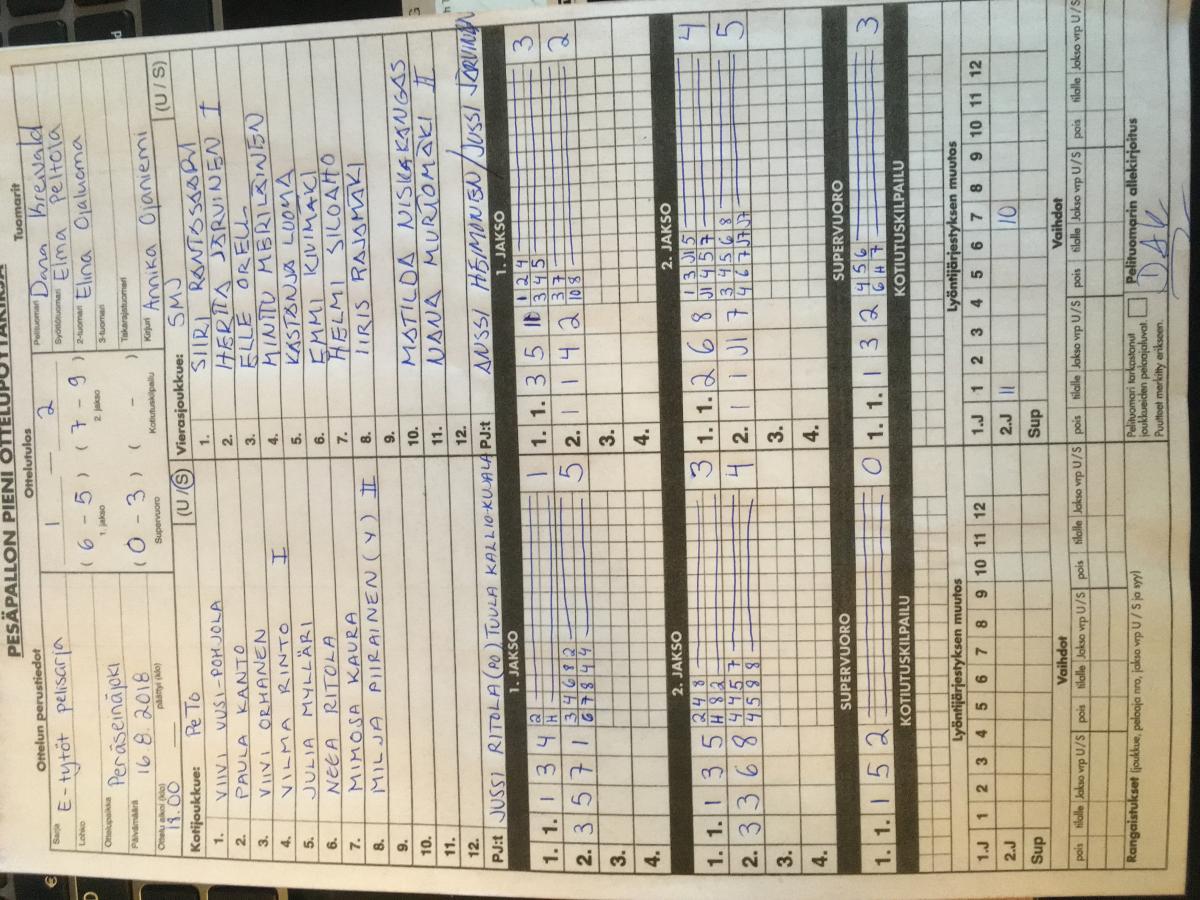 PESÄPALLON PIENI OTTELUPÖYTÄKIRJA
Ottelun perustiedot
Sarja E-tytöt pelisarja
Lohko
Ottelupaikka Peräseinäjoki
Päivämäärä 16.8.2018
Ottelu alkoi (klo) 18.00 päättyi (klo)
Ottelutulos
1 2
( 6 - 5 ) ( 7 - 9 )
1. jakso 2. jakso
( 0 - 3 ) ( - )
Supervuoro Kotiutuskilpailu
Tuomarit
Pelituomari Dana
Syöttötuomari Elma Peltola
2-tuomari Elina Ojaluoma
3-tuomari
Takarajatuomari
Kirjuri Annika Ojaniemi
Kotijoukkue: PeTo (U/S)
1. VIIVI UUSI-POHJOLA
2. PAULA KANTO
3. VIIVI ORHANEN
4. VILMA RINTO I
5. JULIA MYLLÄRI
6. NEEA RITOLA
7. MIMOSA KAURA
8. MILJA PIIRAINEN (Y) II
9.
10.
11.
12.
PJ:t JUSSI RITOLA (PO) TUULA KALLIO-KUJALA
Vierasjoukkue: SMJ (U/S)
1. SIIRI RANTASAARI
2. HERTTA JÄRVINEN I
3. ELLE ORELL
4. MINTTU MERILÄINEN
5. KASTANJA LUOMA
6. EMMI KIVIMÄKI
7. HELMI SILOAHO
8. IIRIS RAJAMÄKI
9.
10. MATILDA NISKAKANGAS
11. NANA MURTOMÄKI II
12.
PJ:t ANSSI HEMMINEN/JUSSI JÄRVINEN
1. JAKSO
1. 1. 1 3 4 2 1
H
2. 3 5 7 1 3 4 6 8 2 5
6 7 8 4 4
3.
4.
1. JAKSO
1. 1. 3 5 1 2 4 3
3 4 5
2. 1 1 4 2 3 7 2
10 8
3.
4.
2. JAKSO
1. 1. 1 3 5 2 4 8 3
H 8 2
2. 3 3 6 8 4 4 5 7 4
4 5 8 8
3.
4.
2. JAKSO
1. 1. 2 6 8 1 3 J1 5 4
J1 4 5 7
2. 1 1 J1 7 3 4 5 6 8 5
4 6 7 J7 J7
3.
4.
SUPERVUORO
1. 1. 1 5 2 0
SUPERVUORO
1. 1. 1 3 2 4 5 6 3
6 H 7
KOTIUTUSKILPAILU
KOTIUTUSKILPAILU
Lyöntijärjestyksen muutos
1.J 1 2 3 4 5 6 7 8 9 10 11 12
2.J
Sup
Lyöntijärjestyksen muutos
1.J 1 2 3 4 5 6 7 8 9 10 11 12
2.J 11 10
Sup
Vaihdot
pois tilalle Jakso vrp U/S pois tilalle Jakso vrp U/S pois tilalle Jakso vrp U/S pois tilalle Jakso vrp U/S
Vaihdot
pois tilalle Jakso vrp U/S pois tilalle Jakso vrp U/S pois tilalle Jakso vrp U/S pois tilalle Jakso vrp U/S
Rangaistukset (joukkue, pelaaja nro, jakso vrp U / S ja syy)
Pelituomari tarkastanut
joukkueiden pelaajaluvat.
Puutteet merkitty erikseen.
Pelituomarin allekirjoitus